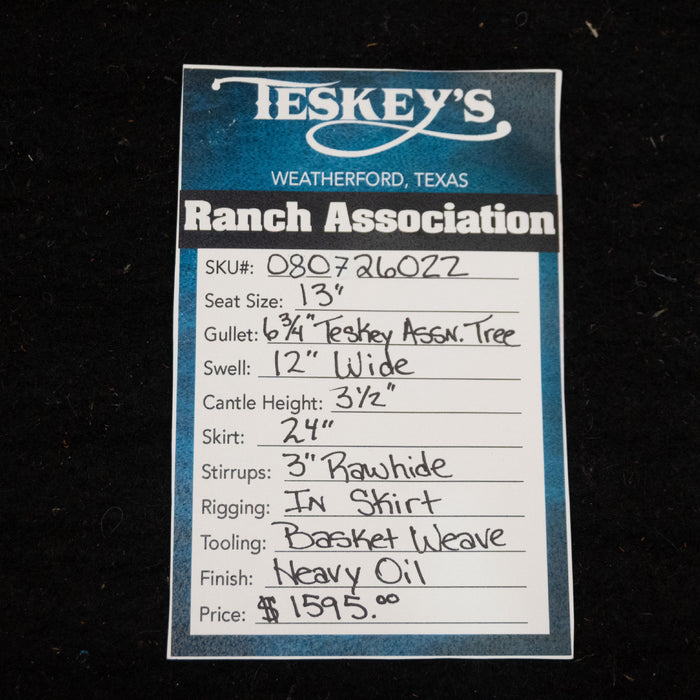 TESKEY'S
WEATHERFORD, TEXAS
Ranch Association
SKU#: 080726022
Seat Size: 13"
Gullet: 6 3/4" Teskey Assn. Tree
Swell: 12" Wide
Cantle Height: 3 1/2"
Skirt: 24"
Stirrups: 3" Rawhide
Rigging: In Skirt
Tooling: Basket Weave
Finish: Heavy Oil
Price: $1595.00